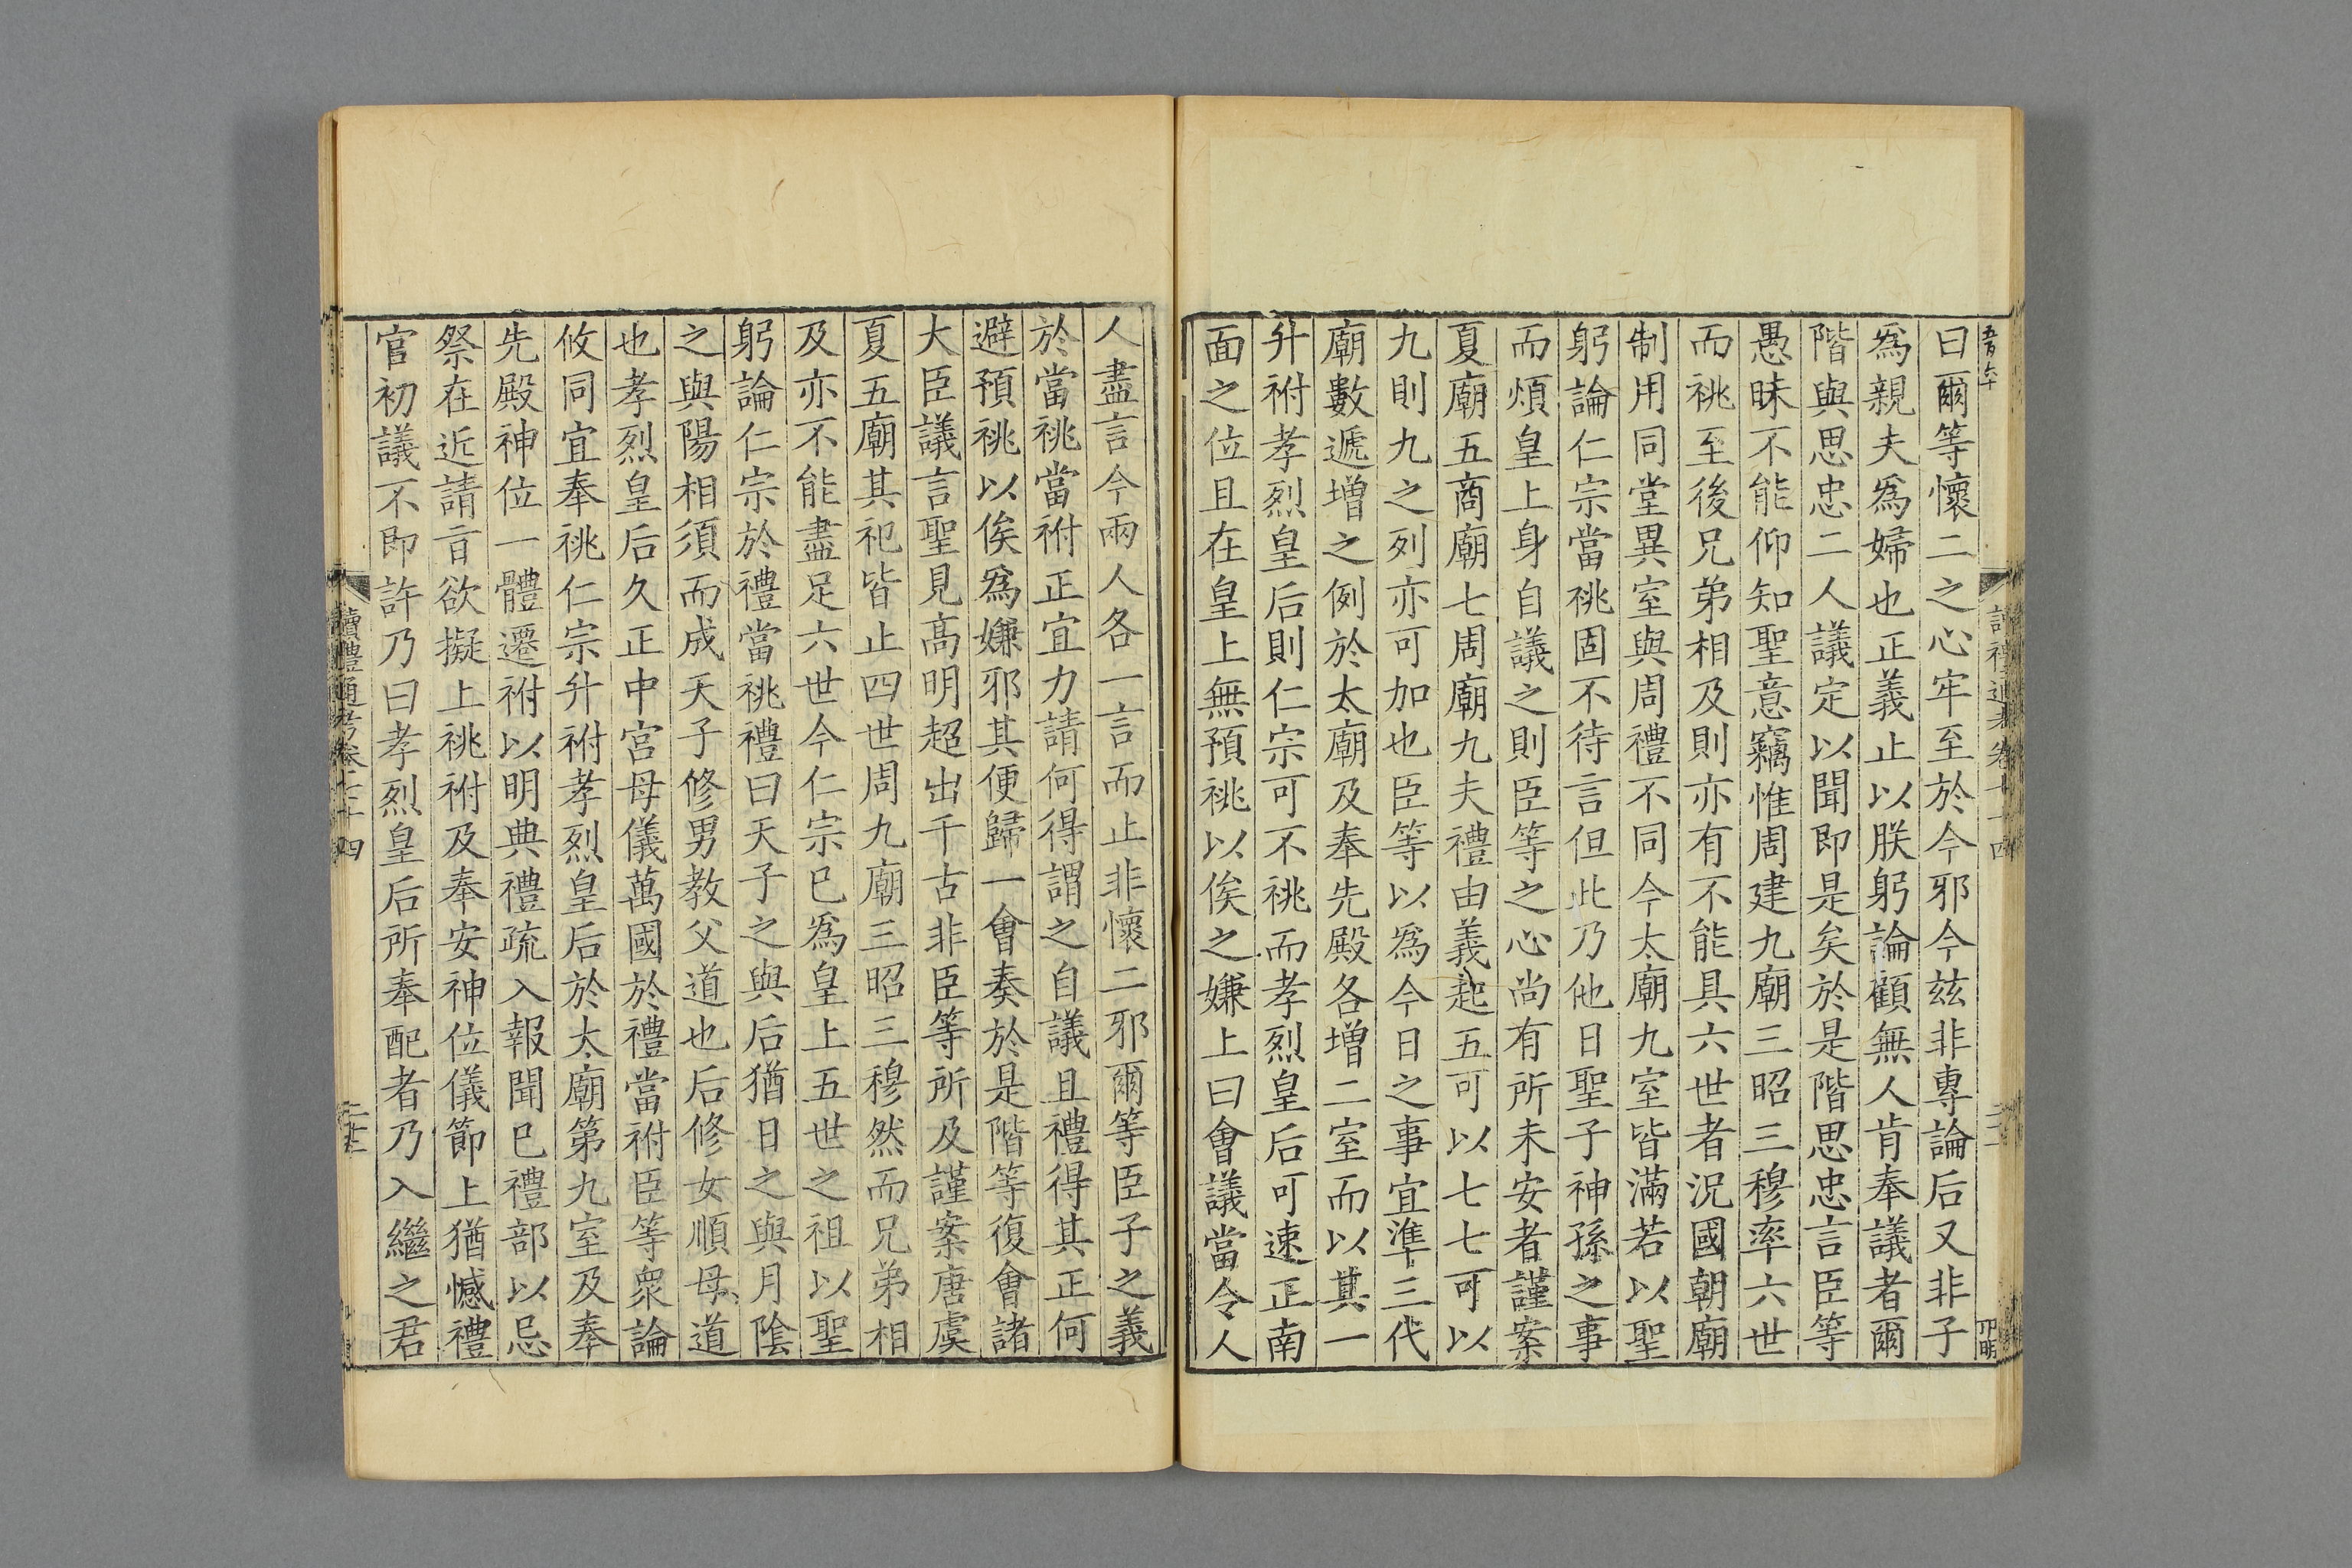 曰爾等懷二之心牢至於今邪今玆非專論后又非子
爲親夫爲婦也正義止以朕躬論顧無人肯奉議者爾
階與思忠二人議定以聞即是矣於是階思忠言臣等
愚昧不能仰知聖意竊惟周建九廟三昭三穆率六世
而祧至後兄弟相及則亦有不能具六世者況國朝廟
制用同堂異室與周禮不同今太廟九室皆滿若以聖
躬論仁宗當祧固不待言但此乃他日聖子神孫之事
而煩皇上身自議之則臣等之心尚有所未安者謹案
夏廟五商廟七周廟九夫禮由義起五可以七七可以
九則九之列亦可加也臣等以爲今日之事宜準三代
廟數遞增之例於太廟及奉先殿各增二室而以其一
升祔孝烈皇后則仁宗可不祧而孝烈皇后可速正南
面之位且在皇上無預祧以俟之嫌上曰會議當令人
人盡言今兩人各一言而止非懷二邪爾等臣子之義
於當祧當祔正宜力請何得謂之自議且禮得其正何
避預祧以俟爲嫌邪其便歸一會奏於是階等復會諸
大臣議言聖見高明超出千古非臣等所及謹案唐虞
夏五廟其祀皆止四世周九廟三昭三穆然而兄弟相
及亦不能盡足六世今仁宗已爲皇上五世之祖以聖
躬論仁宗於禮當祧禮曰天子之與后猶日之與月陰
之與陽相須而成天子修男教父道也后修女順母道
也孝烈皇后久正中宮母儀萬國於禮當祔臣等衆論
攸同宜奉祧仁宗升祔孝烈皇后於太廟第九室及奉
先殿神位一體遷祔以明典禮疏入報聞已禮部以忌
祭在近請㫖欲擬上祧祔及奉安神位儀節上猶憾禮
官初議不即許乃曰孝烈皇后所奉配者乃入繼之君
讀禮通考卷七十四